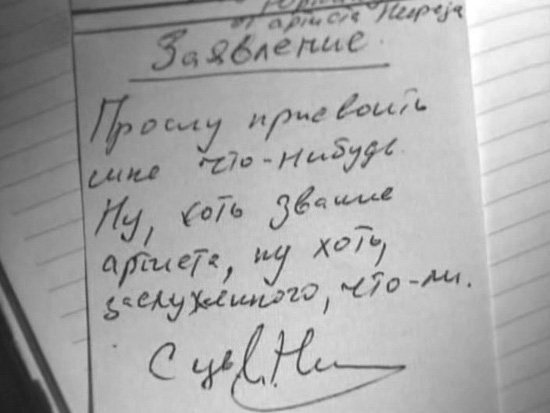 от артиста
Заявление.
Прошу присвоить
мне что-нибудь.
Ну, хоть звание
артиста, ну хоть,
заслуженного, что-ли.